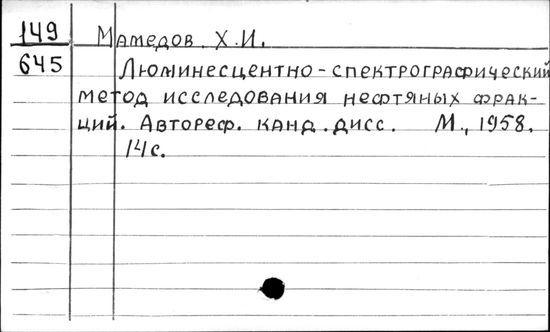 149 Мамедов Х.И.
645 Люминесцентно-спектрографический
метод исследования нефтяных фрак-
ций. Автореф. канд. дисс. М., 1958.
14с.